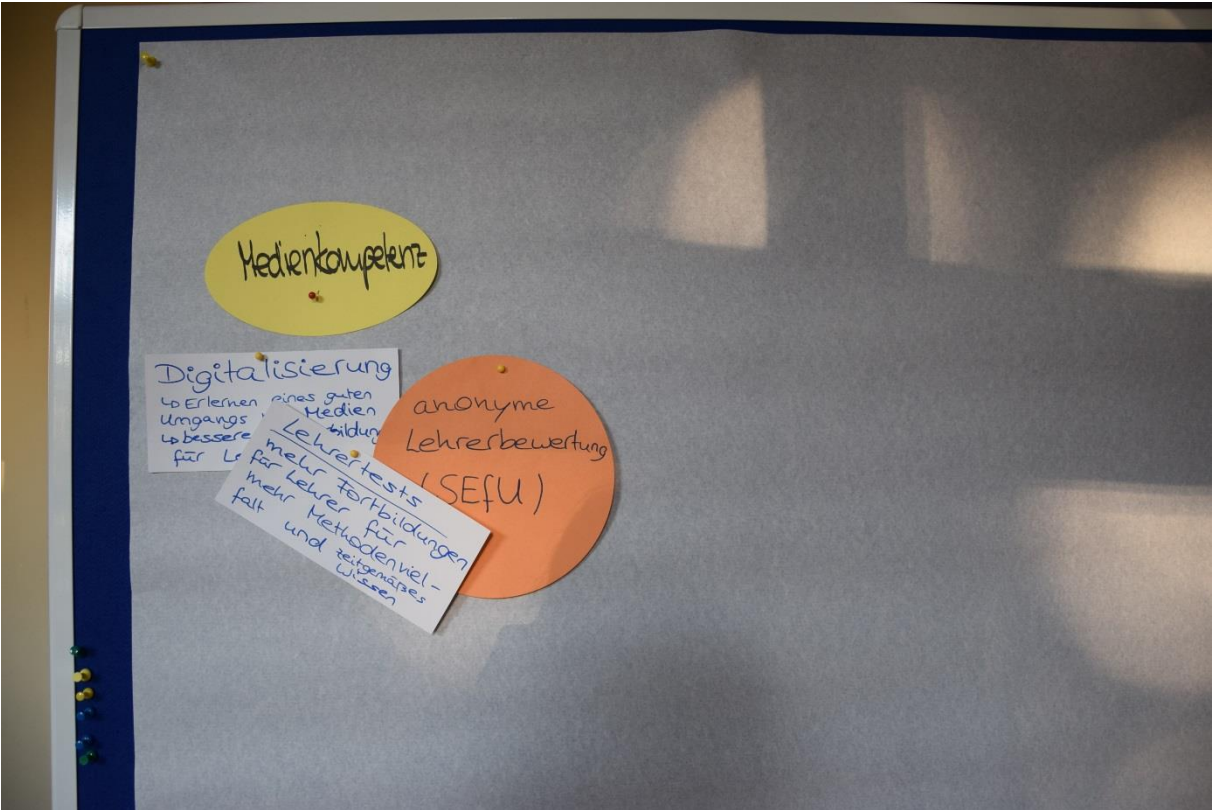 Medienkompetenz
Digitalisierung
↳ Erlernen eines guten
Umgangs Medien
↳ bessere bildun
für
Lehrertests
mehr Fortbildungen
für Lehrer für
mehr Methodenviel-
falt und zeitgemäßes
Wissen
anonyme
Lehrerbewertung
(SEfU)